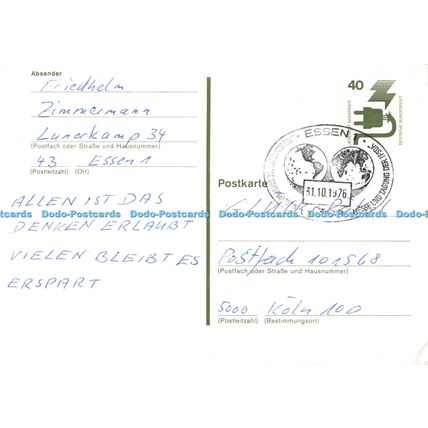 Absender
Friedhelm
Zimmermann
Lunerkamp 34
(Postfach oder Straße und Hausnummer)
43 Essen 1
(Postleitzahl) (Ort)
ALLEN IST DAS
DENKEN ERLAUBT
VIELEN BLEIBT ES
ERSPART
40
DEUTSCHE BUNDESPOST
ESSEN 1
31.10.1976
Postkarte
Postfach 101568
(Postfach oder Straße und Hausnummer)
5000 Köln 100
(Postleitzahl) (Bestimmungsort)
Dodo-Postcards Dodo-Postcards Dodo-Postcards Dodo-Postcards Dodo-Postcards